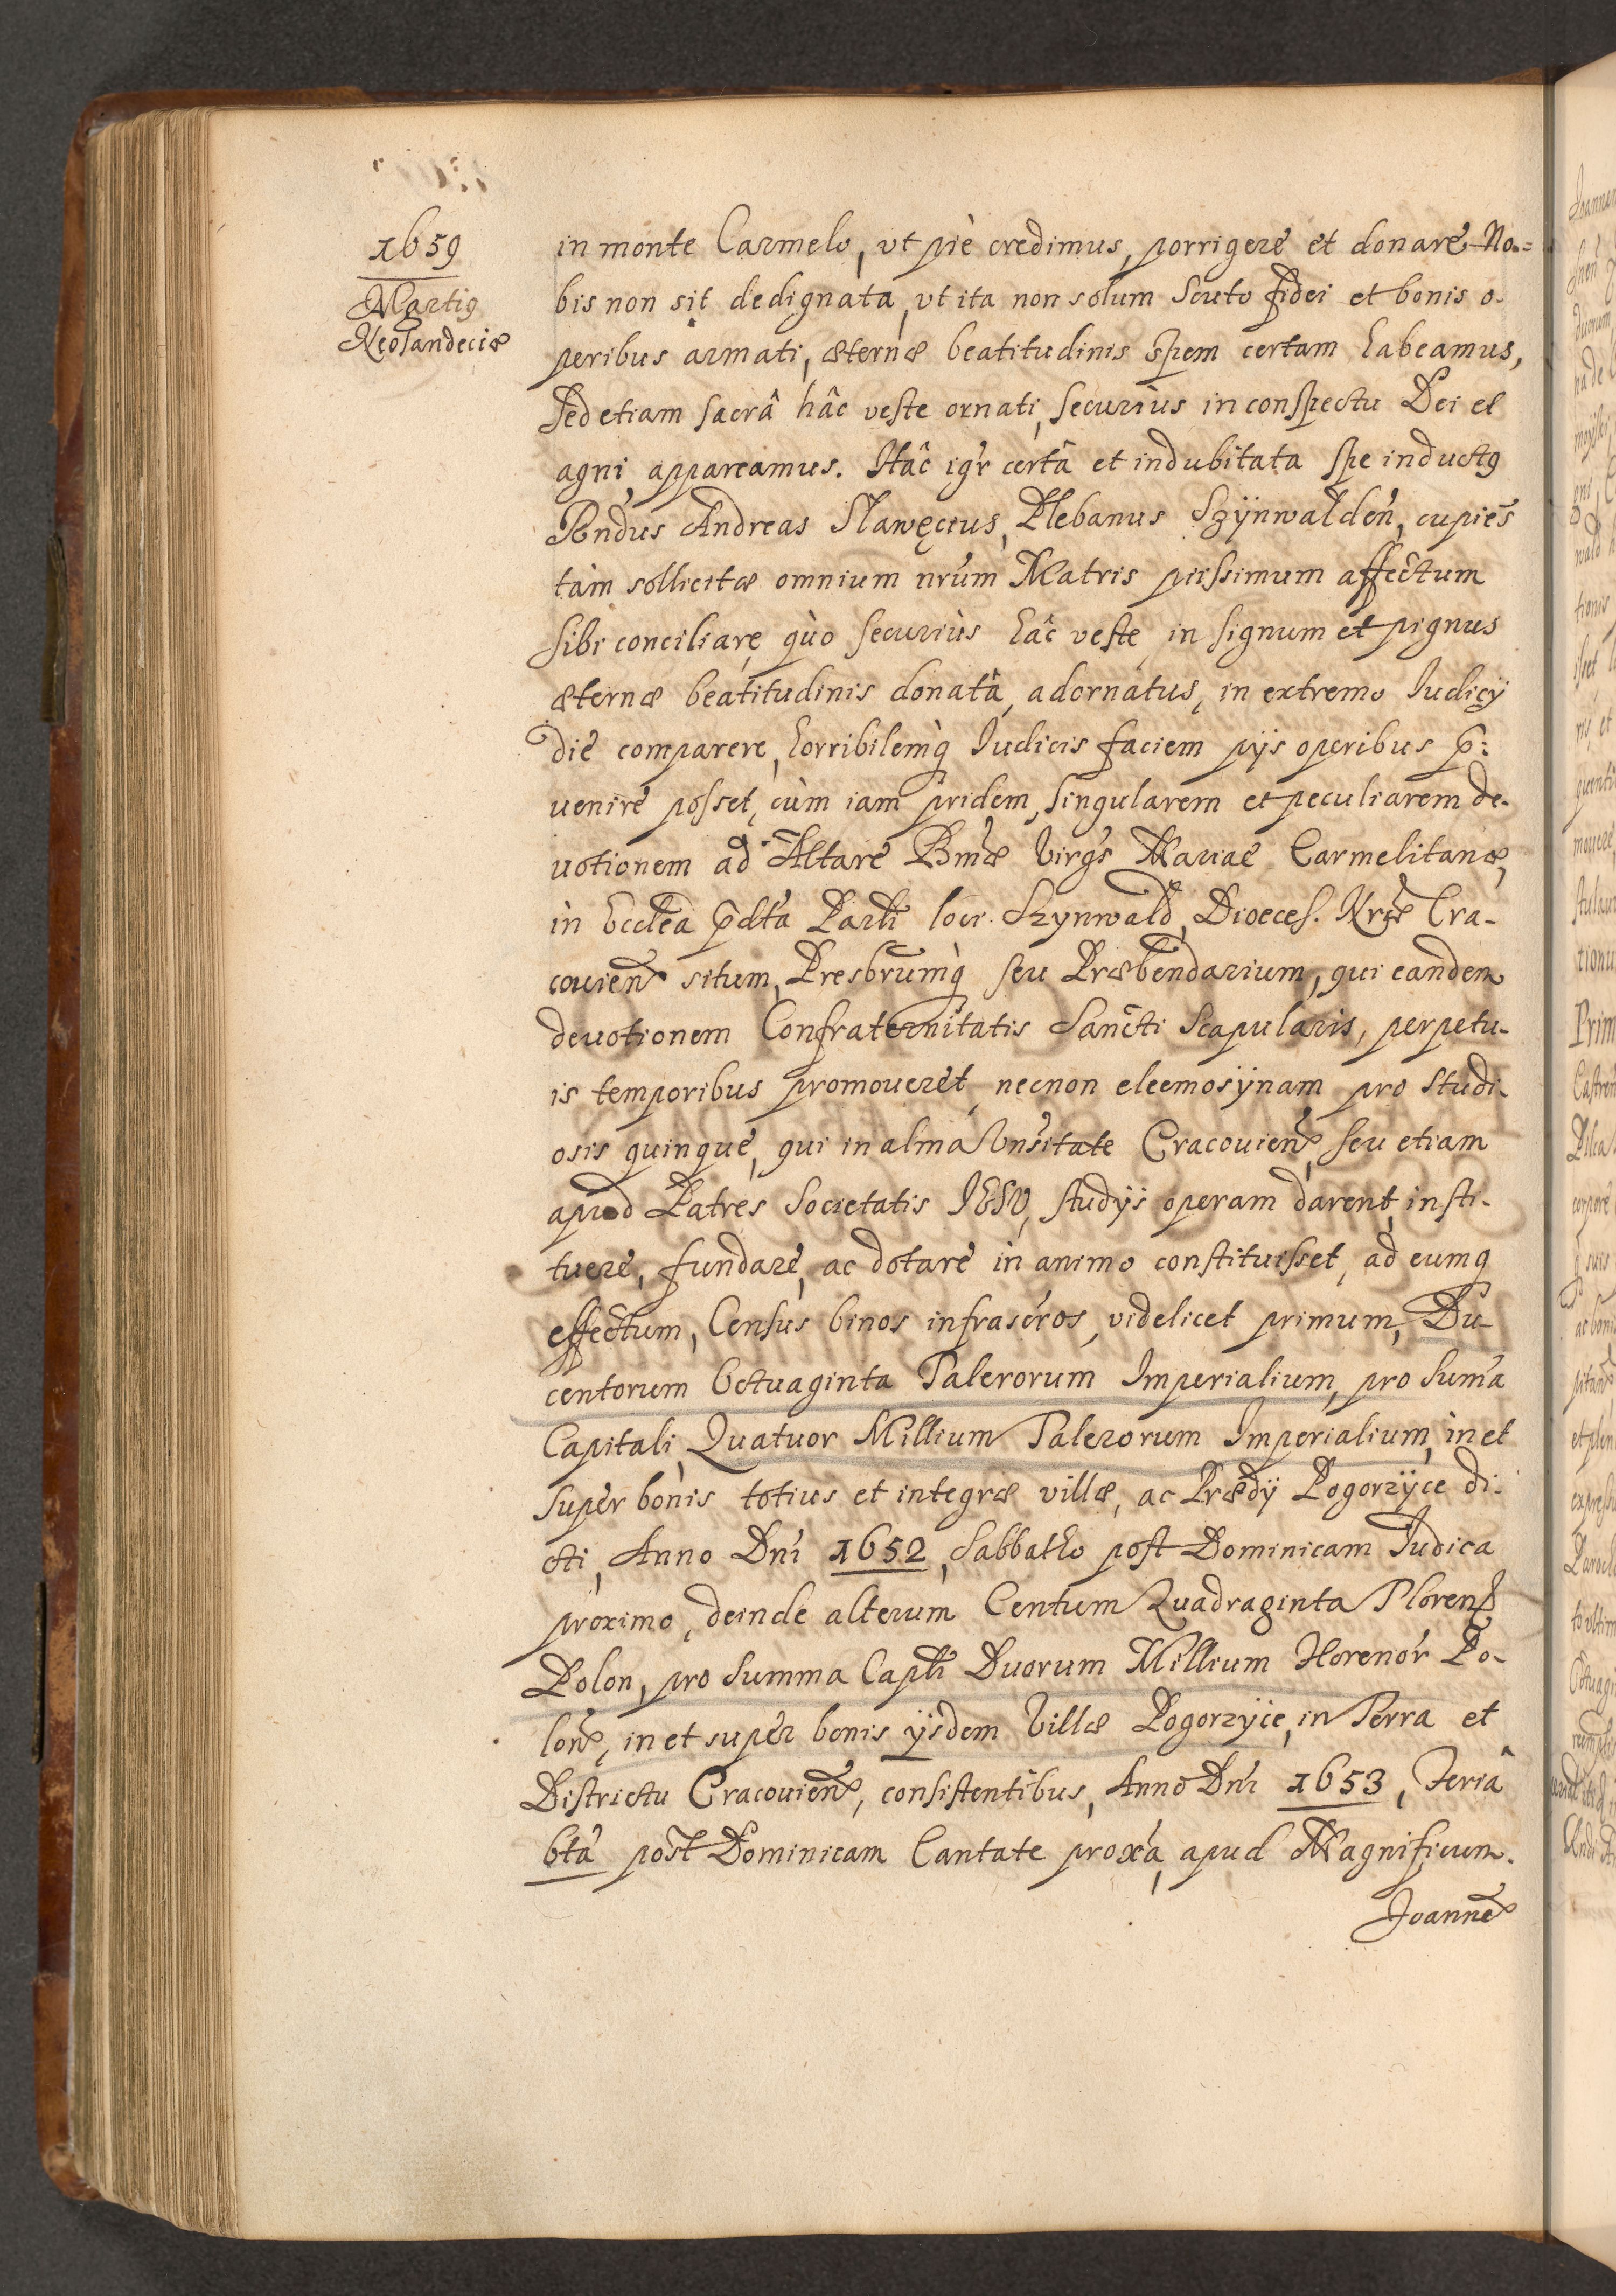 1659
Martiꝯ
Neosandeciæ
in monte Carmelo, vt piè credimus, porrigere et donare No=
bis non sit dedignata, vt ita non solum Scuto fidei et bonis o-
peribus armati, æternæ beatitudinis spem certam habeamus,
Sed etiam sacrâ hâc veste ornati, securiùs in conspectu Dei et
agni appareamus. Hâc igr̃ certâ et indubitata spe inductꝯ
Rñdus Andreas Sławęcius, Plebanus Szÿnwalden̄, cupiēs
tàm sollicitæ omnium nr̃um Matris piissimum affectum
sibi conciliare, quò securiùs hâc veste, in signum et pignus
æternæ beatitudinis donatâ, adornatus, in extremo Iudicÿ
die comparere, horribilemq̀ Iudicis faciem pÿs operibus p̄:
uenire posset, cùm iam pridem, singularem et peculiarem de-
uotionem ad Altare Bmæ Virg̃s Mariae Carmelitanæ,
in Eccl̃ea p̄dta Parl̃i loci Szynwald, Dioeces. Nræ Cra-
couien̄ situm, Presbr̃umq̀ seu Præbendarium, qui eandem
deuotionem Confraternitatis Sancti Scapularis, perpetu-
is temporibus promoueret, necnon eleemosÿnam pro studi-
osis quinque, qui in alma Vnsitate Cracouien̄, seu etiam
apud Patres Societatis IESV, studÿs operam darent, insti-
tuere, fundare, ac dotare in animo constituisset, ad eumq
effectum, Census binos infrascr̃os, videlicet primum, Du-
centorum Octuaginta Talerorum Imperialium, pro sum̃a
Capitali, Quatuor Millium Talerorum Imperialium, in et
super bonis totius et integræ villæ, ac Prædÿ Pogorzÿce di-
cti, Anno Dni 1652, Sabbatho post Dominicam Iudica
proximo, deinde alterum Centum Quadraginta Floren̄
Polon, pro summa Capl̃i Duorum Millium Florenor̃ Po-
lon̄, in et super bonis ÿsdem Villæ Pogorzÿce, in Terra et
Districtu Cracouien̄, consistentibus, Anno Dni 1653, Feriâ
6tâ post Dominicam Cantate prox̃a, apud Magnificum
Joannē